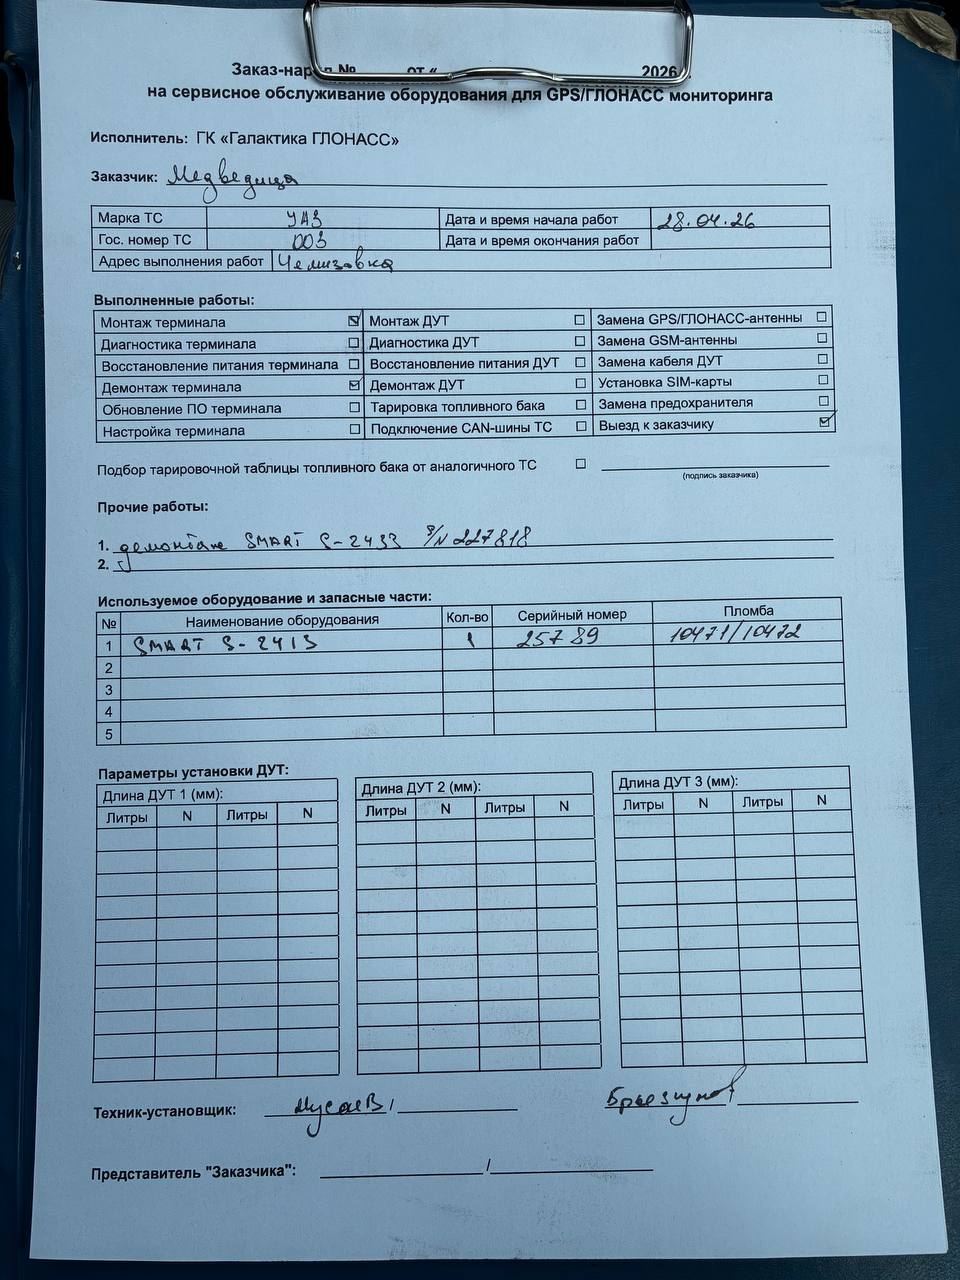 Заказ-наряд № от « 2026
на сервисное обслуживание оборудования для GPS/ГЛОНАСС мониторинга
Исполнитель: ГК «Галактика ГЛОНАСС»
Заказчик: Медведица
Марка ТС УАЗ Дата и время начала работ 28.04.26
Гос. номер ТС 003 Дата и время окончания работ
Адрес выполнения работ Чемизовка
Выполненные работы:
Монтаж терминала ☑ Монтаж ДУТ ☐ Замена GPS/ГЛОНАСС-антенны ☐
Диагностика терминала ☐ Диагностика ДУТ ☐ Замена GSM-антенны ☐
Восстановление питания терминала ☐ Восстановление питания ДУТ ☐ Замена кабеля ДУТ ☐
Демонтаж терминала ☑ Демонтаж ДУТ ☐ Установка SIM-карты ☐
Обновление ПО терминала ☐ Тарировка топливного бака ☐ Замена предохранителя ☐
Настройка терминала ☐ Подключение CAN-шины ТС ☐ Выезд к заказчику ☑
Подбор тарировочной таблицы топливного бака от аналогичного ТС ☐
(подпись заказчика)
Прочие работы:
1. демонтаж SMART S-2433 S/N 227818
2.
Используемое оборудование и запасные части:
№ Наименование оборудования Кол-во Серийный номер Пломба
1 SMART S-2413 1 25789 10471/10472
2
3
4
5
Параметры установки ДУТ:
Длина ДУТ 1 (мм): Длина ДУТ 2 (мм): Длина ДУТ 3 (мм):
Литры N Литры N Литры N Литры N Литры N Литры N
Техник-установщик: Мусаев /
Представитель "Заказчика": /